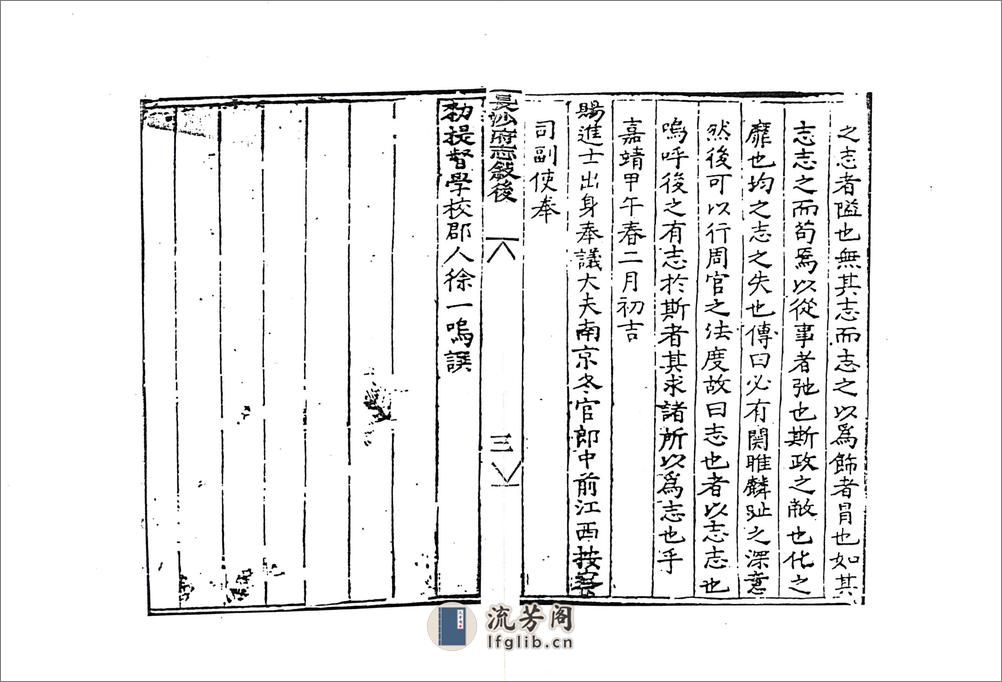 之志者隘也無其志而志之以爲飾者冒也如其
志志之而苟焉以從事者弛也斯政之敝也化之
靡也均之志之失也傳曰必有関雎麟趾之深意
然後可以行周官之法度故曰志也者以志志也
嗚呼後之有志於斯者其求諸所以爲志也乎
嘉靖甲午春二月初吉
賜進士出身奉議大夫南京冬官郎中前江西按察
司副使奉
長沙府志敍後
三
勑提督學校郡人徐一鳴譔
流芳阁
lfglib.cn